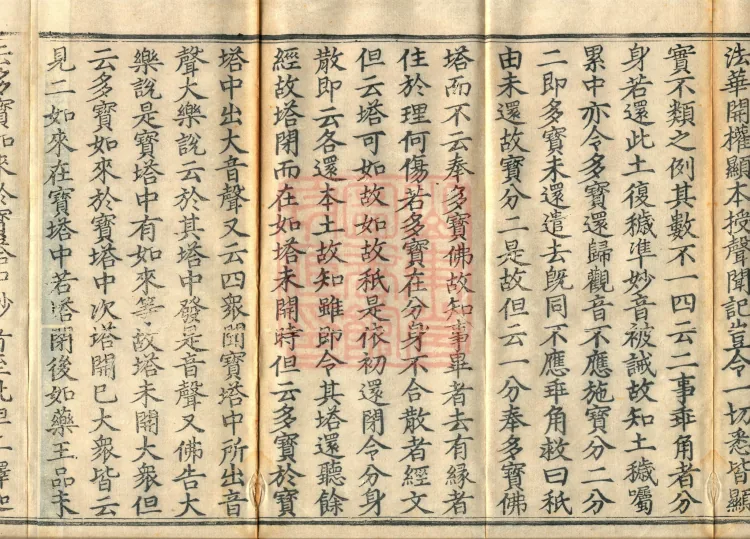 法華開權顯本授聲聞記豈令一切悉皆顯
實不類之例其數不一四云二事乖角者分
身若還此土復穢准妙音被誡故知土穢囑
累中亦令多寶還歸觀音不應施寶分二分
二即多寶未還遣去既同不應乖角救曰秖
由未還故寶分二是故但云一分奉多寶佛
塔而不云奉多寶佛故知事畢者去有緣者
住於理何傷若多寶在分身不合散者經文
但云塔可如故如故秖是依初還閉令分身
散即云各還本土故知雖即令其塔還聽餘
經故塔閉而在如塔未開時但云多寶於寶
塔中出大音聲又云四衆聞寶塔中所出音
聲大樂說云於其塔中發是音聲又佛告大
樂說是寶塔中有如來等故塔未開大衆但
云多寶如來於寶塔中次塔開已大衆皆云
見二如來在寶塔中若塔閉後如藥王品未
云多寶如來於寶塔